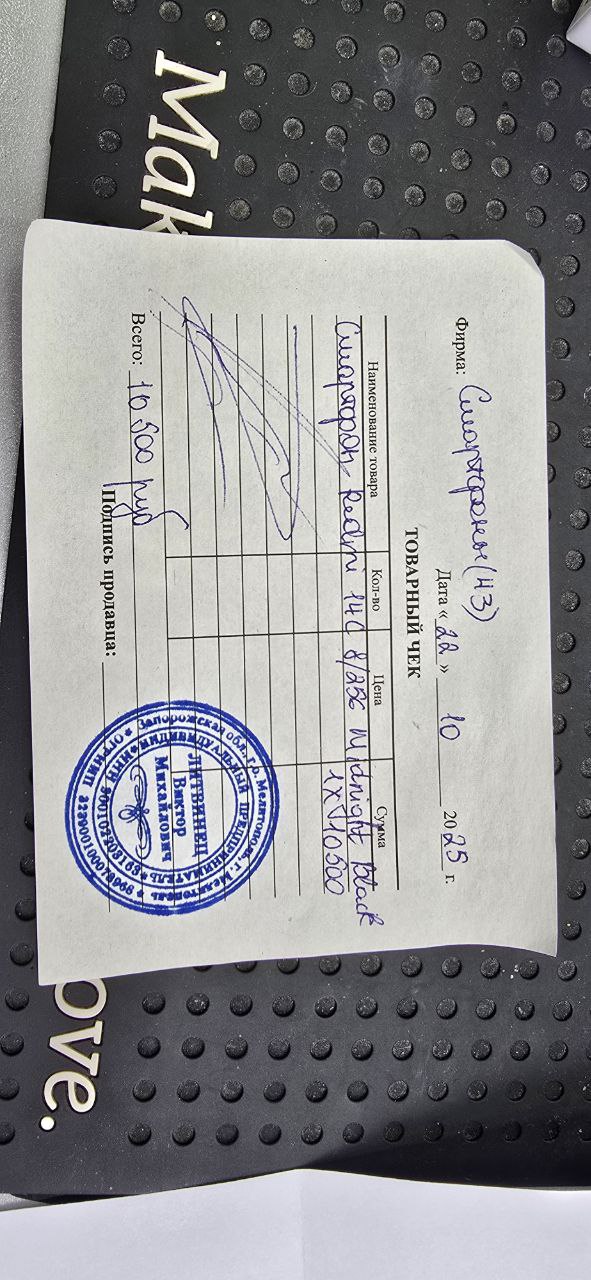 Фирма: Смартфоны (НЗ)
Дата «22» 10 2025 г.
ТОВАРНЫЙ ЧЕК
Наименование товара Кол-во Цена Сумма
Смартфон Redmi 14C 8/256 Midnight Black
1 x 10 500
Всего: 10 500 руб
Подпись продавца:
Запорожская обл., г.о. Мелитополь, г. Мелитополь
ИНДИВИДУАЛЬНЫЙ ПРЕДПРИНИМАТЕЛЬ
ИНН
ОГРНИП
ЛИТВИНЕЦ
Виктор
Михайлович
Mak
ove.